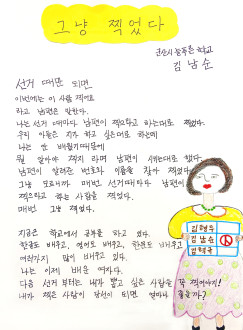 그냥 찍었다
군산시늘푸른학교
김남순
선거 때만 되면
이번에는 이 사람 찍어요
라고 남편은 말한다.
나는 선거 때마다 남편이 찍으라고 하는대로 찍었다.
우리 아들은 지가 하고 싶은대로 하는데
나는 안 배웠기때문에
뭘 알아야 찍지 라며 남편이 시키는대로 했다.
남편이 알려준 번호와 이름을 찾아 찍었다.
그냥 모르니까 매번 선거때마다 남편이
찍으라고 하는 사람을 찍었다.
매번 그냥 찍었다.
지금은 학교에서 공부를 하고 있다.
한글도 배우고, 영어도 배우고, 한문도 배우고
여러가지 많이 배우고 있다.
나는 이제 배운 여자다.
다음 선거 부터는 내가 뽑고 싶은 사람을 꼭 찍어야지!
내가 찍은 사람이 당선이 되면 얼마나 좋을까?
김남순